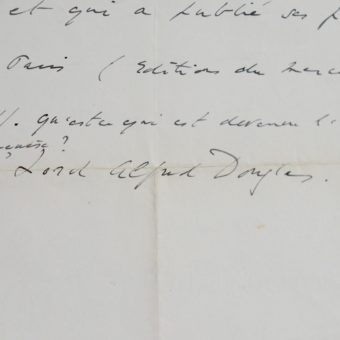 et qui a publié ses p
Paris (Editions du merc
qu'estce qui est devenu l'
Lord Alfred Douglas.